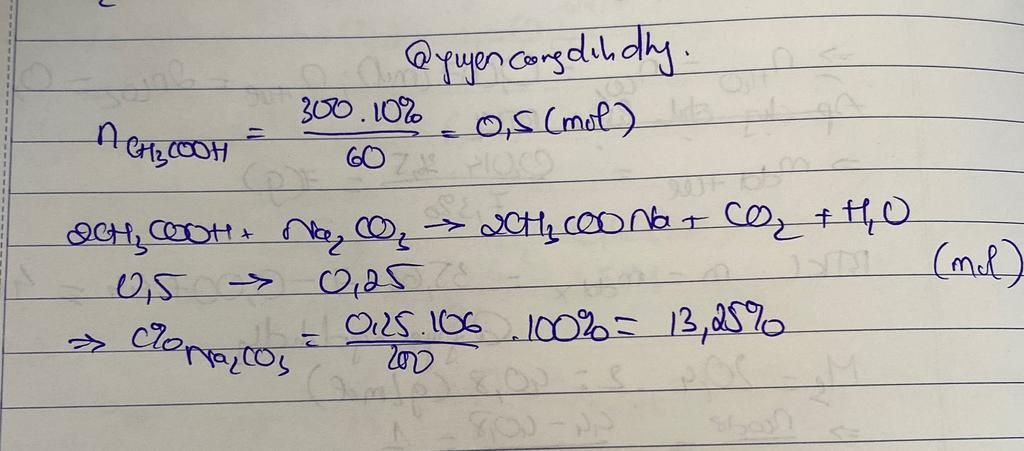 @yuyencongdihdhy.
n CH3COOH = 300.10% / 60 = 0,5 (mol)
2CH3COOH + Na2CO3 → 2CH3COONa + CO2 + H2O
0,5 → 0,25 (mol)
⇒ C% Na2CO3 = 0,25.106 / 200 .100% = 13,25%